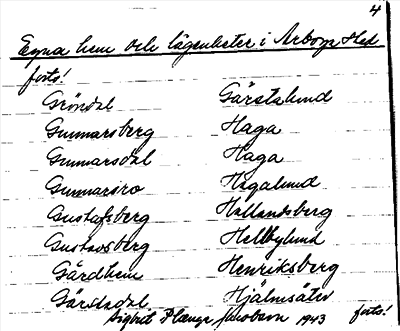 4
Egna hem och lägenheter i Arboga Stad
forts!
Gröndal Gärstalund
Gunnarsberg Haga
Gunnarsdal Haga
Gunnarsro Hagalund
Gustafsberg Hallandsberg
Gustavsberg Hellbylund
Gärdhem Henriksberg
Gärdsdal Hjälmsäter
Sigbrit Plænge Jacobson 1943 forts!